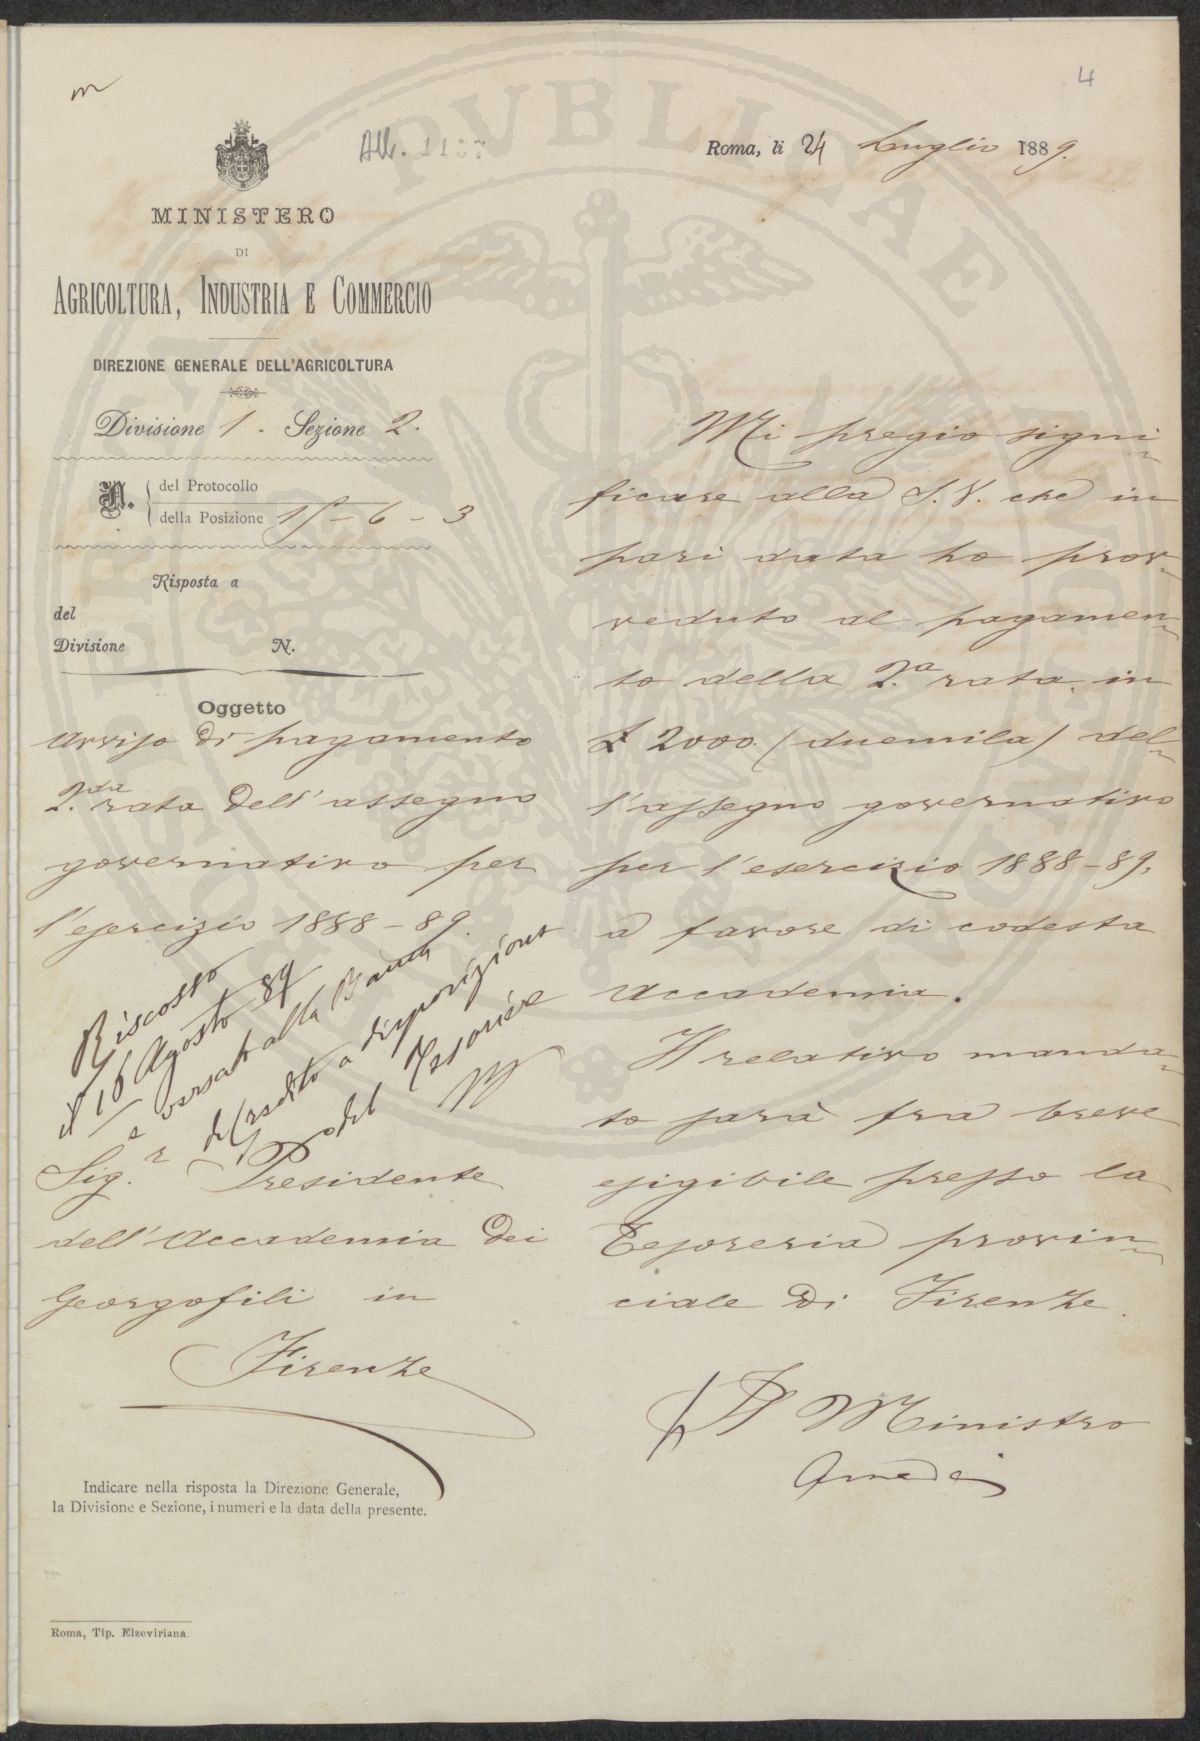 4
Roma, li 24 Luglio 1889.
MINISTERO
DI
AGRICOLTURA, INDUSTRIA E COMMERCIO
DIREZIONE GENERALE DELL'AGRICOLTURA
Divisione 1. Sezione 2.
N. del Protocollo
della Posizione 15-6-3
Risposta a
del
Divisione N.
Oggetto
Avviso di pagamento
2.da rata dell'assegno
governativo per
l'esercizio 1888-89.
Riscosso
il 16 Agosto 89
e versato alla Banca
di Credito a disposizione
del Tessoriere
Sig.r Presidente
dell'Accademia dei
Georgofili in
Firenze
Indicare nella risposta la Direzione Generale,
la Divisione e Sezione, i numeri e la data della presente.
Roma, Tip. Elzeviriana.
Mi pregio signi
ficare alla S.V. che in
pari data ho prov-
veduto al pagamen-
to della 2.a rata, in
£ 2000. (duemila) del-
l'assegno governativo
per l'esercizio 1888-89,
a favore di codesta
Accademia.
Il relativo manda-
to sarà fra breve
esigibile presso la
Tesoreria provin-
ciale di Firenze.
Il Ministro